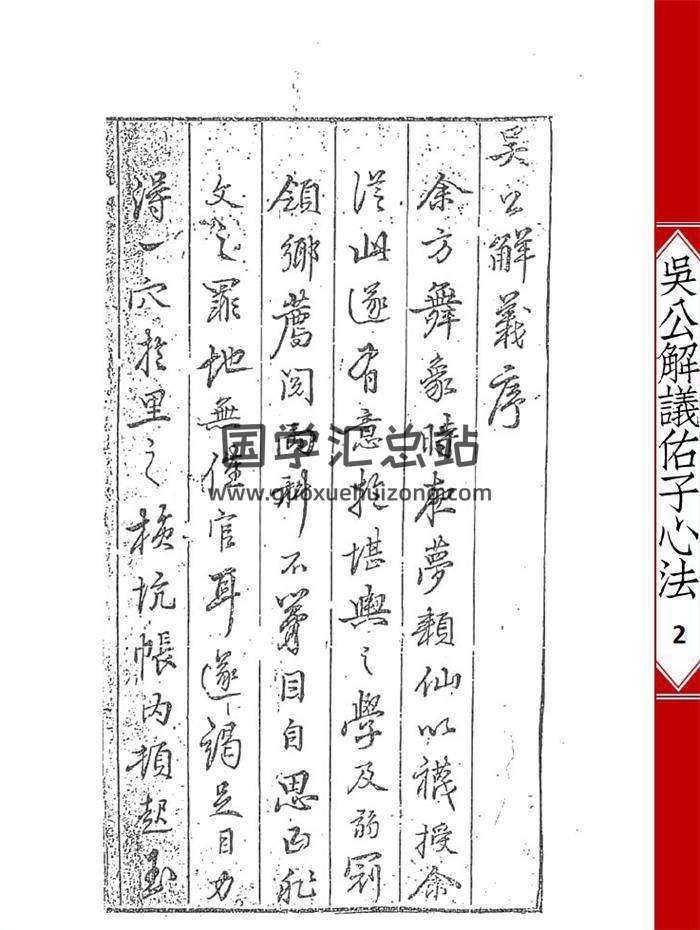 吳公解義序
余方舞象時夢賴仙以襪授余
從此遂有意於堪輿之學及弱冠
領鄉薦閱兩科不目自思非
文之罪地無催官耳遂竭足目力
得一穴於里之橫坑帳內頓起
国学汇总站
www.guoxuehuizong.com
吳公解議佑子心法
2